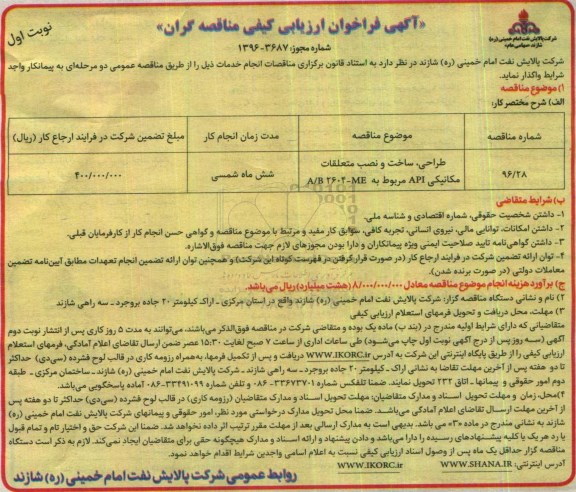 «آگهی فراخوان ارزیابی کیفی مناقصه گران»
نوبت اول
شماره مجوز: ۳۶۸۷-۱۳۹۶
شرکت پالایش نفت امام خمینی (ره)
شازند (سهامی عام)
شرکت پالایش نفت امام خمینی (ره) شازند در نظر دارد به استناد قانون برگزاری مناقصات انجام خدمات ذیل را از طریق مناقصه عمومی دو مرحله‌ای به پیمانکار واجد
شرایط واگذار نماید.
۱) موضوع مناقصه
الف) شرح مختصر کار:
شماره مناقصه موضوع مناقصه مدت زمان انجام کار مبلغ تضمین شرکت در فرایند ارجاع کار (ریال)
۹۶/۲۸ طراحی، ساخت و نصب متعلقات مکانیکی API مربوط به A/B ۲۶۰۲-ME شش ماه شمسی ۴۰۰/۰۰۰/۰۰۰
ب) شرایط متقاضی
۱- داشتن شخصیت حقوقی، شماره اقتصادی و شناسه ملی.
۲- داشتن امکانات، توانایی مالی، نیروی انسانی، تجربه کافی، سوابق کار مفید و مرتبط با موضوع مناقصه و گواهی حسن انجام کار از کارفرمایان قبلی.
۳- داشتن گواهی‌نامه تایید صلاحیت ایمنی ویژه پیمانکاران و دارا بودن مجوزهای لازم جهت مناقصه فوق‌الاشاره.
۴- توان ارائه تضمین شرکت در فرایند ارجاع کار (در صورت قرار گرفتن در فهرست کوتاه این شرکت) و همچنین توان ارائه تضمین انجام تعهدات مطابق آیین‌نامه تضمین
معاملات دولتی (در صورت برنده شدن).
ج) برآورد هزینه انجام موضوع مناقصه معادل ۸/۰۰۰/۰۰۰/۰۰۰ (هشت میلیارد) ریال می‌باشد.
۲) نام و نشانی دستگاه مناقصه گزار: شرکت پالایش نفت امام خمینی (ره) شازند واقع در استان مرکزی ـ اراک کیلومتر ۲۰ جاده بروجرد ـ سه راهی شازند
۳) مهلت، محل دریافت و تحویل فرمهای استعلام ارزیابی کیفی
متقاضیانی که دارای شرایط اولیه مندرج در (بند ب) ماده یک بوده و متقاضی شرکت در مناقصه فوق‌الذکر می‌باشند، می‌توانند به مدت ۵ روز کاری پس از انتشار نوبت دوم
آگهی (سه روز پس از درج آگهی نوبت اول چاپ می‌شود) طی ساعات اداری از ساعت ۷ صبح لغایت ۱۵:۳۰ عصر ضمن ارسال تقاضای اعلام آمادگی، فرمهای استعلام
ارزیابی کیفی را از طریق پایگاه اینترنتی این شرکت به آدرس WWW.IKORC.ir دریافت و پس از تکمیل فرمها، به همراه رزومه کاری در قالب لوح فشرده (سی‌دی) حداکثر
تا دو هفته پس از آخرین مهلت تقاضا به نشانی اراک ـ کیلومتر ۲۰ جاده بروجرد ـ سه راهی شازند ـ شرکت پالایش نفت امام خمینی (ره) شازند ـ ساختمان مرکزی ـ طبقه
دوم امور حقوقی و پیمانها ـ اتاق ۲۳۲ تحویل نمایند. ضمنا تلفکس شماره ۳۳۶۷۳۷۰۱-۰۸۶ و تلفن شماره ۳۳۴۹۱۰۹۹-۰۸۶ آماده پاسخگویی می‌باشد.
۴) محل، زمان و مهلت تحویل اسناد و مدارک متقاضیان: مهلت تحویل اسناد و مدارک متقاضیان (رزومه کاری) در قالب لوح فشرده (سی‌دی) حداکثر تا دو هفته پس
از آخرین مهلت ارسال تقاضای اعلام آمادگی می‌باشد. ضمنا محل تحویل مدارک درخواستی مورد نظر، امور حقوقی و پیمانهای شرکت پالایش نفت امام خمینی (ره)
شازند به نشانی مندرج در ماده «۳» می باشد. بدیهی است به مدارک ارسالی بعد از مهلت مقرر ترتیب اثر داده نخواهد شد. ضمنا این شرکت حق و اختیار تام و تمام قبول
یا رد هر یک یا کلیه پیشنهادهای رسیده را دارا می‌باشد و دادن پیشنهاد و ارائه اسناد و مدارک هیچگونه حقی برای متقاضیان ایجاد نمی‌کند. لازم به ذکر است دستگاه
مناقصه گزار حداقل یک ماه پس از وصول اسناد ارزیابی کیفی نسبت به اعلام اسامی واجدین شرایط اقدام خواهد نمود.
آدرس اینترنتی: WWW.SHANA.IR WWW.IKORC.ir
روابط عمومی شرکت پالایش نفت امام خمینی (ره) شازند